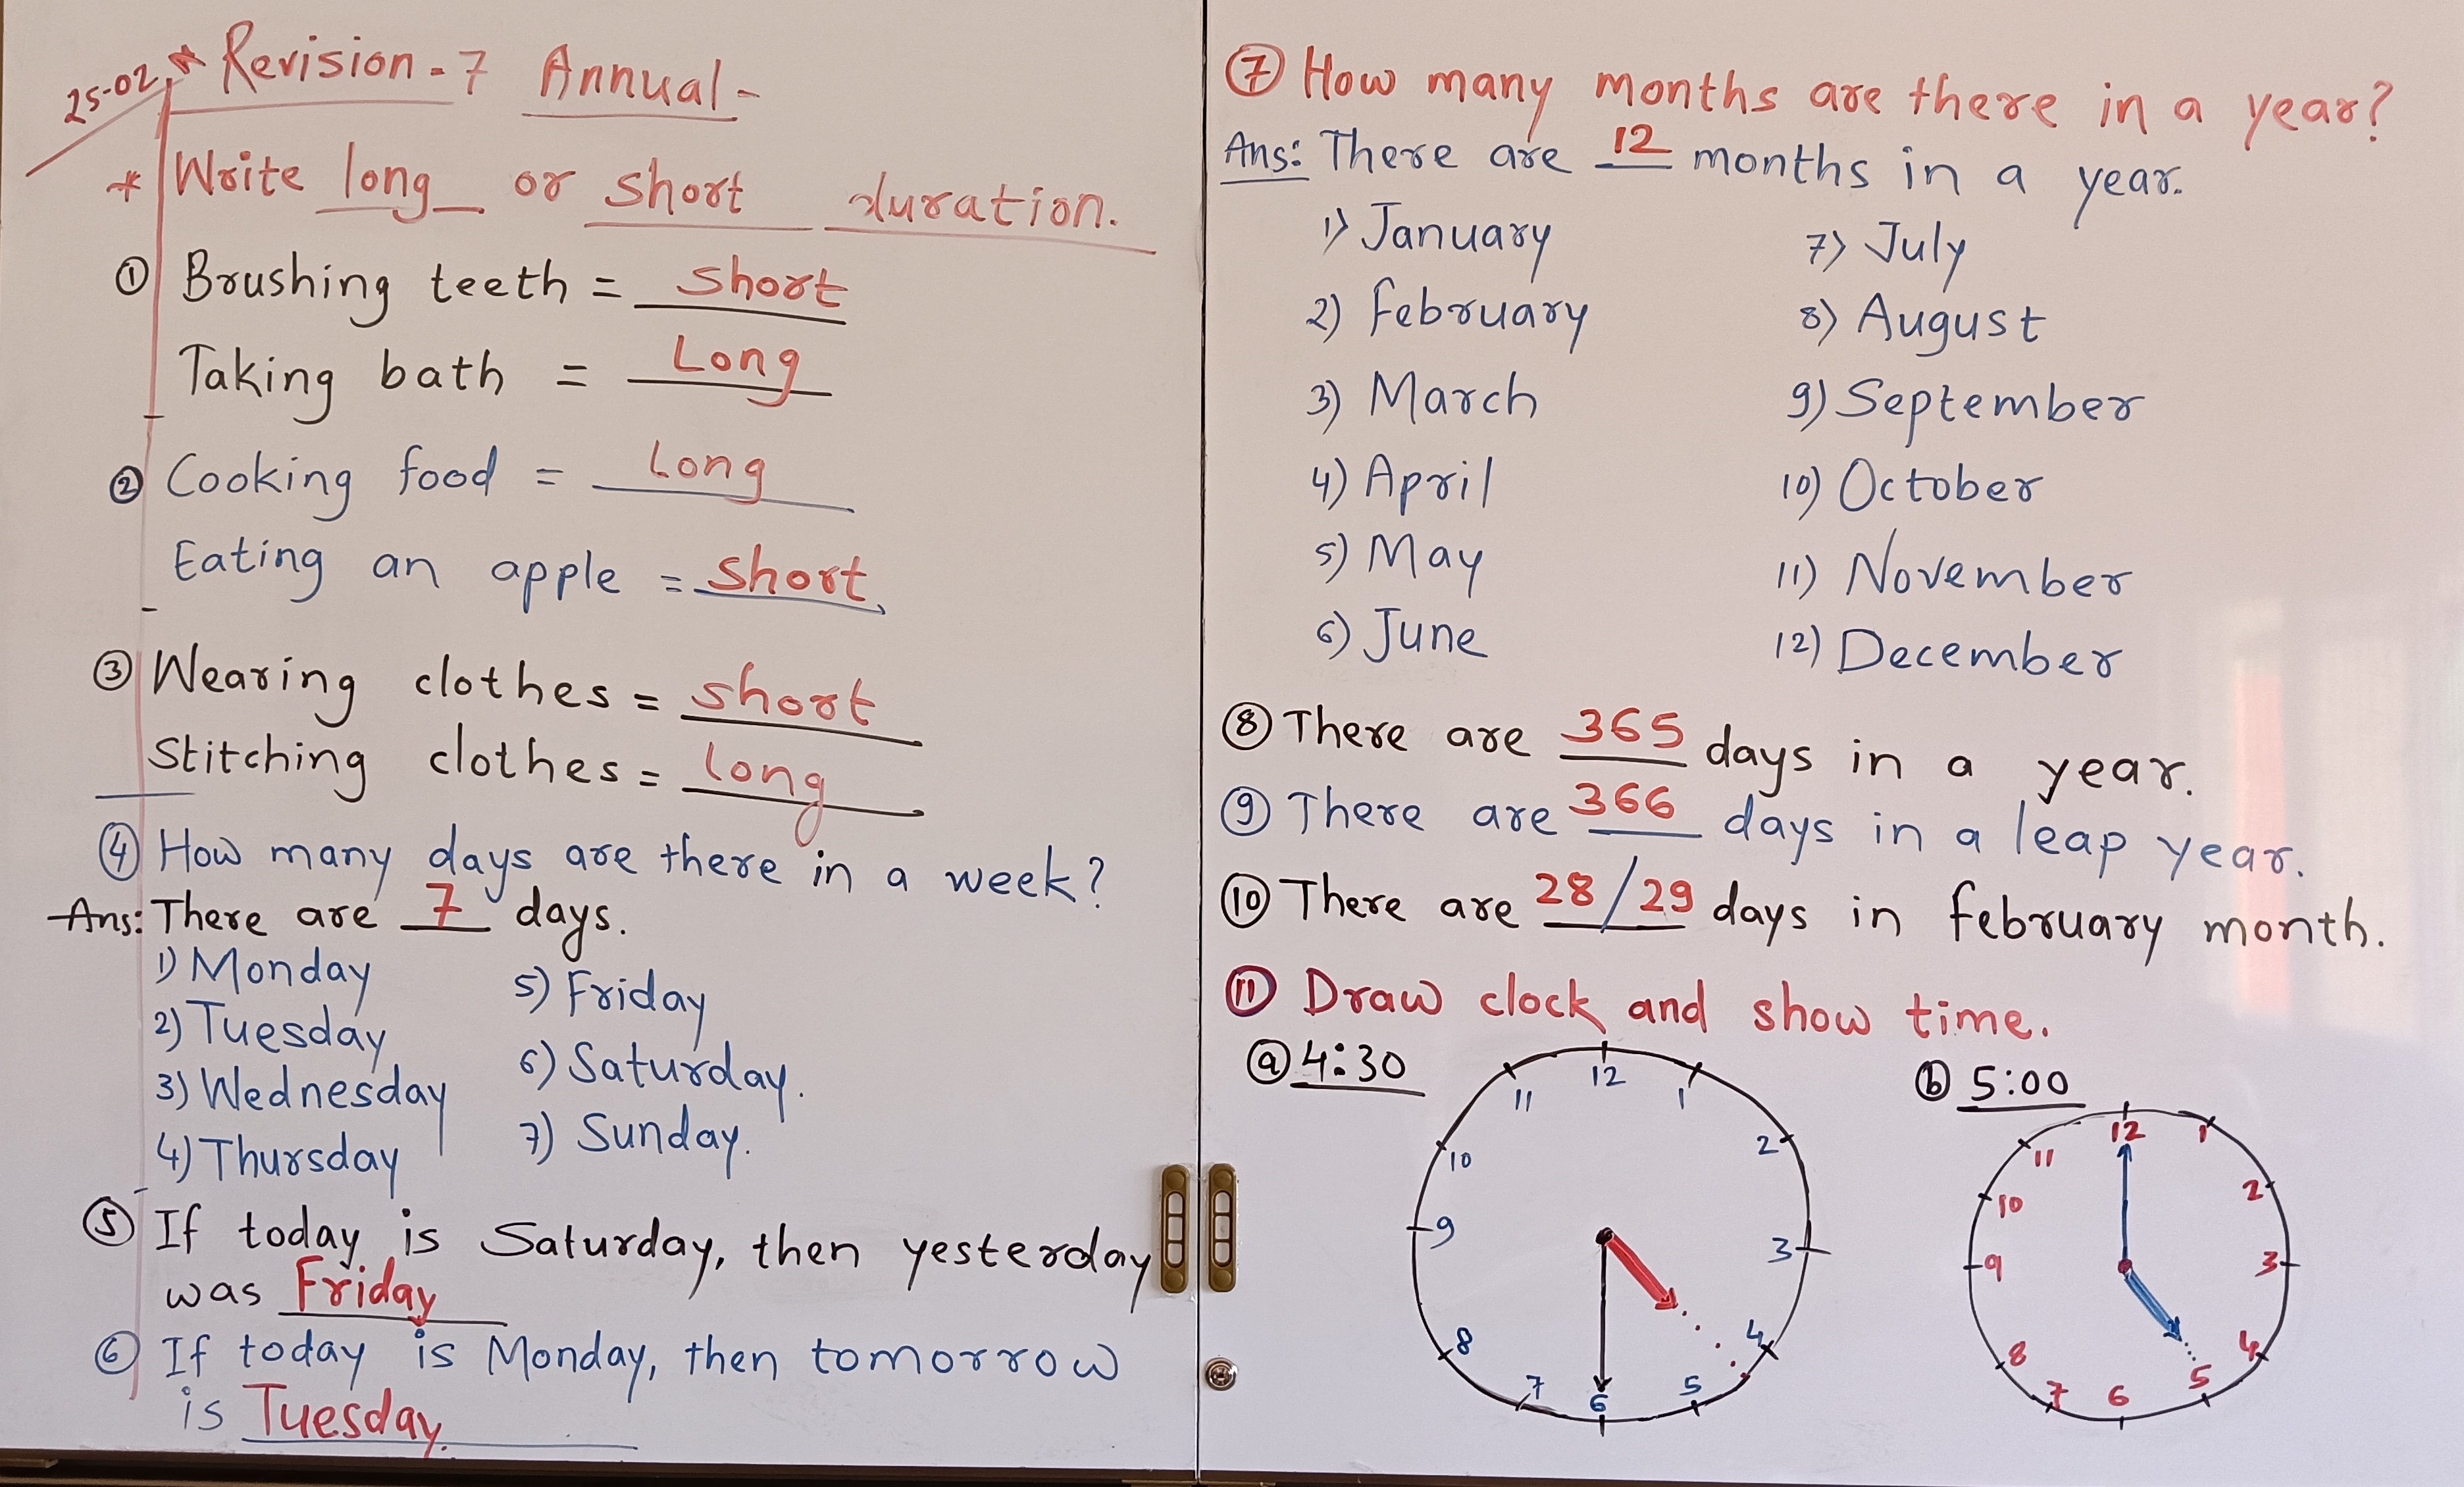 25-02
* Revision-7 Annual-
* Write long or short duration.
① Brushing teeth = short
Taking bath = Long
② Cooking food = Long
Eating an apple = short
③ Wearing clothes = short
Stitching clothes = long
④ How many days are there in a week?
Ans: There are 7 days.
1) Monday
2) Tuesday
3) Wednesday
4) Thursday
5) Friday
6) Saturday.
7) Sunday.
⑤ If today is Saturday, then yesterday
was Friday
⑥ If today is Monday, then tomorrow
is Tuesday.
⑦ How many months are there in a year?
Ans: There are 12 months in a year.
1) January
2) February
3) March
4) April
5) May
6) June
7) July
8) August
9) September
10) October
11) November
12) December
⑧ There are 365 days in a year.
⑨ There are 366 days in a leap year.
⑩ There are 28/29 days in february month.
⑪ Draw clock and show time.
ⓐ 4:30
12 1 2 3 4 5 6 7 8 9 10 11
ⓑ 5:00
12 1 2 3 4 5 6 7 8 9 10 11